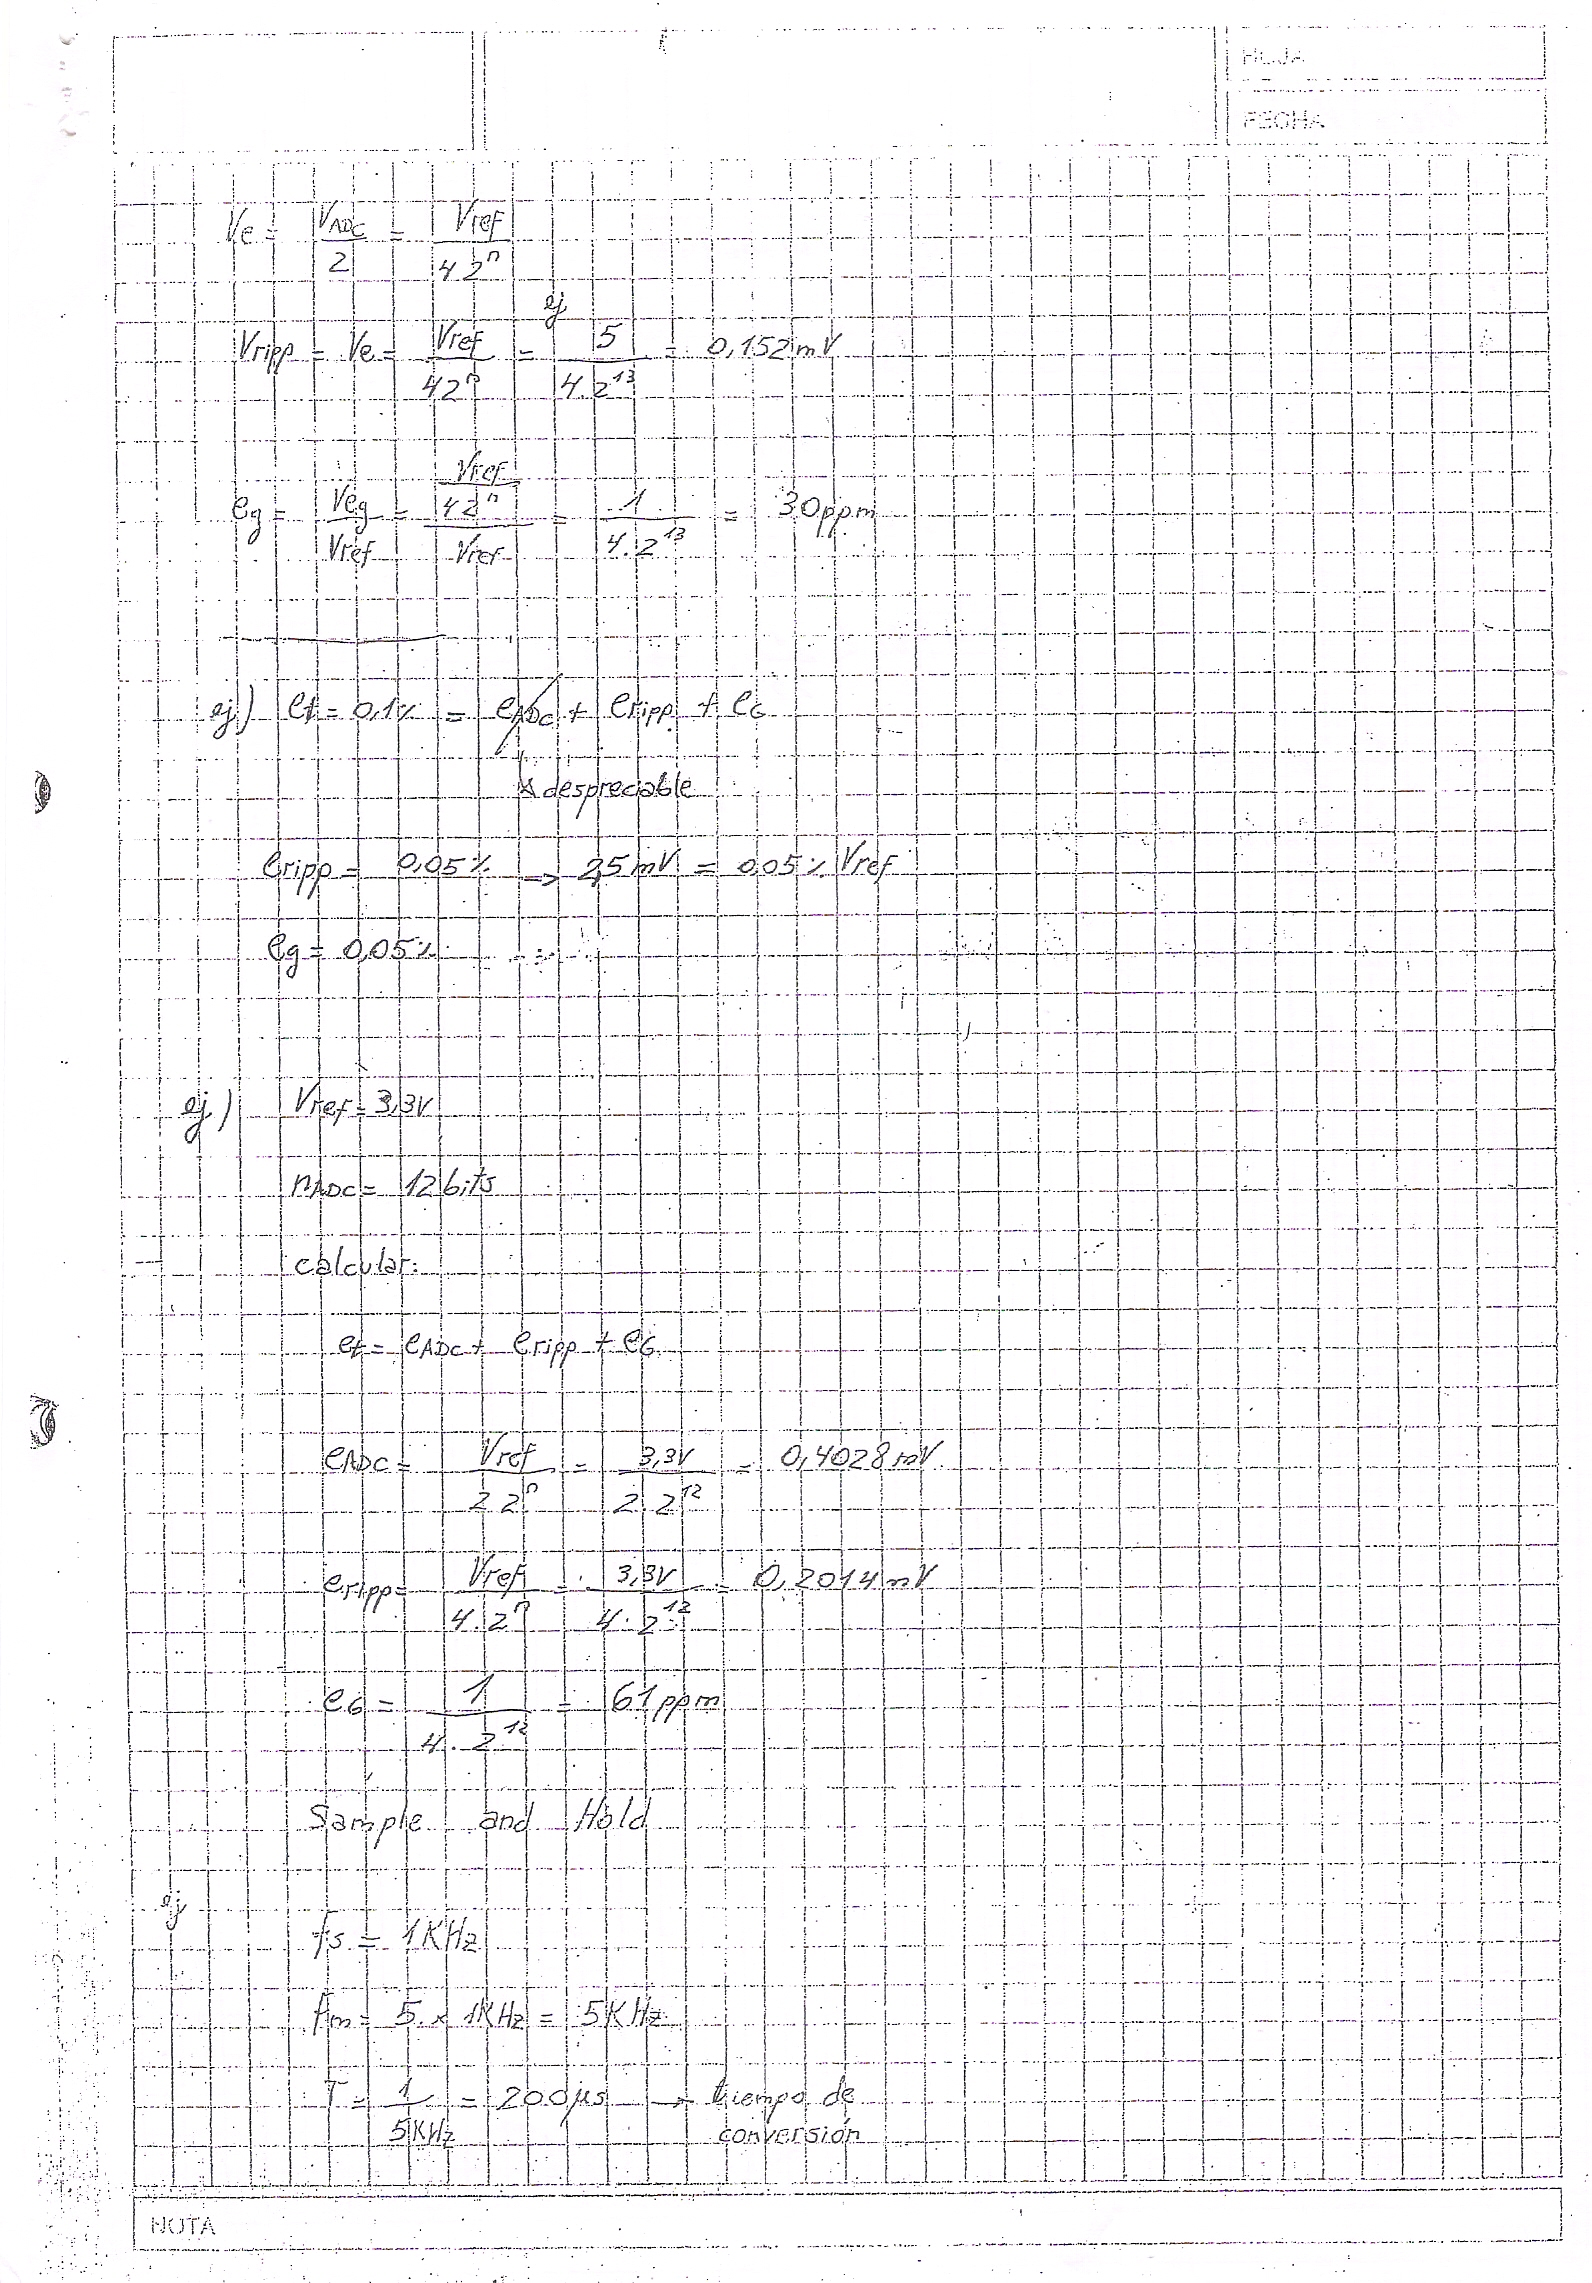 HOJA
FECHA
Ve = VADC/2 = Vref/4 2^n
Vripp = Ve = Vref/4 2^n = ej 5/4.2^13 = 0,152 mV
eg = Veg/Vref = (Vref/4 2^n)/Vref = 1/4.2^13 = 30 ppm
ej) et = 0,1% = eADC + eripp + eG
* despreciable
eripp = 0,05% → 2,5 mV = 0,05% Vref
eg = 0,05%
ej) Vref = 3,3V
nADC = 12 bits
calcular:
et = eADC + eripp + eG
eADC = Vref/2 2^n = 3,3V/2.2^12 = 0,4028 mV
eripp = Vref/4.2^n = 3,3V/4.2^12 = 0,2014 mV
eG = 1/4.2^12 = 61 ppm
Sample and Hold
ej
fs = 1KHz
fm = 5 x 1KHz = 5KHz
T = 1/5KHz = 200 µs → tiempo de
conversión
NOTA